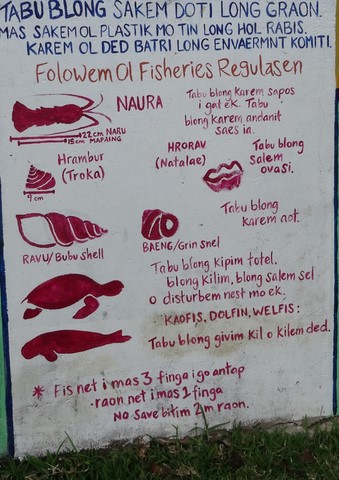 TABU BLONG SAKEM DOTI LONG GRAON.
MAS SAKEM OL PLASTIK MO TIN LONG HOL RABIS.
KAREM OL DED BATRI LONG ENVAERMNT KOMITI.
Folowem Ol Fisheries Regulasen
NAURA
Tabu blong karem sapos
i gat ek. Tabu
blong karem andanit
saes ia.
22cm NARU
MAPAING
15 cm
Hrambur
(Troka)
4 cm
HRORAV
(Natalae)
Tabu blong
salem
ovasi.
RAVU/Bubu shell
BAENG/Grin snel
Tabu blong
karem aot.
Tabu blong kipim totel,
blong kilim, blong salem sel
o disturbem nest mo ek.
KAOFIS, DOLFIN, WELFIS:
Tabu blong givim kil o kilem ded.
* Fis net i mas 3 finga i go antap
raon net i mas 1 finga
NO save bitim 2m raon.